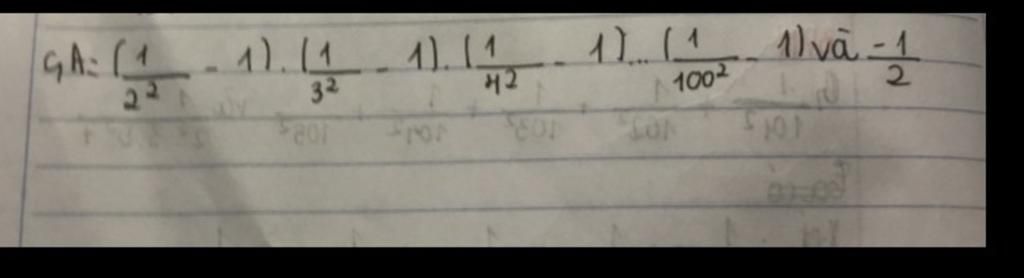 G, A = (1/2² - 1) . (1/3² - 1) . (1/4² - 1)... (1/100² - 1) và -1/2